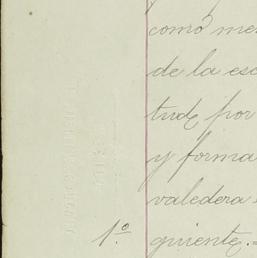 como me
de la esc
tud por
y forma
valedera
1º. guiente.=